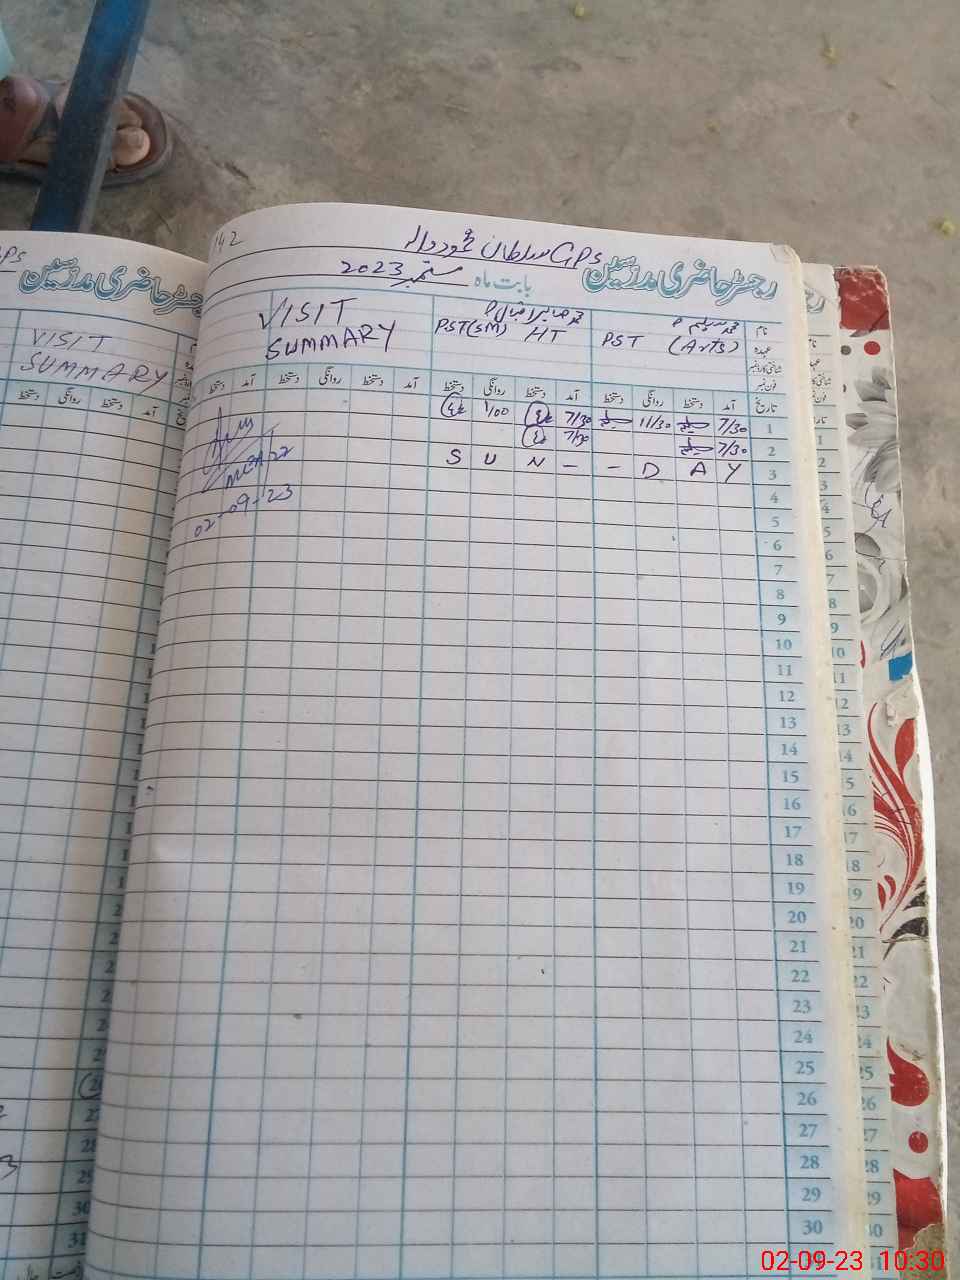 142
GPS سلطان محمود والہ
رجسٹر حاضری مدرسین بابت ماہ ستمبر 2023
نام
عہدہ
شناختی کارڈ نمبر
فون نمبر
محمد سلیم
PST (Arts)
محمد صابر اقبال
PST(SM) HT
VISIT
SUMMARY
تاریخ آمد دستخط روانگی دستخط آمد دستخط روانگی دستخط آمد دستخط روانگی دستخط آمد
1 7/30 11/30 7/30 1/00
2 7/30 7/30
3 S U N - - D A Y
4
5
6
7
8
9
10
11
12
13
14
15
16
17
18
19
20
21
22
23
24
25
26
27
28
29
30
02-09-23
GPS
رجسٹر حاضری مدرسین
VISIT
SUMMARY
دستخط روانگی دستخط آمد تاریخ
27
28
29
30
31
02-09-23 10:30